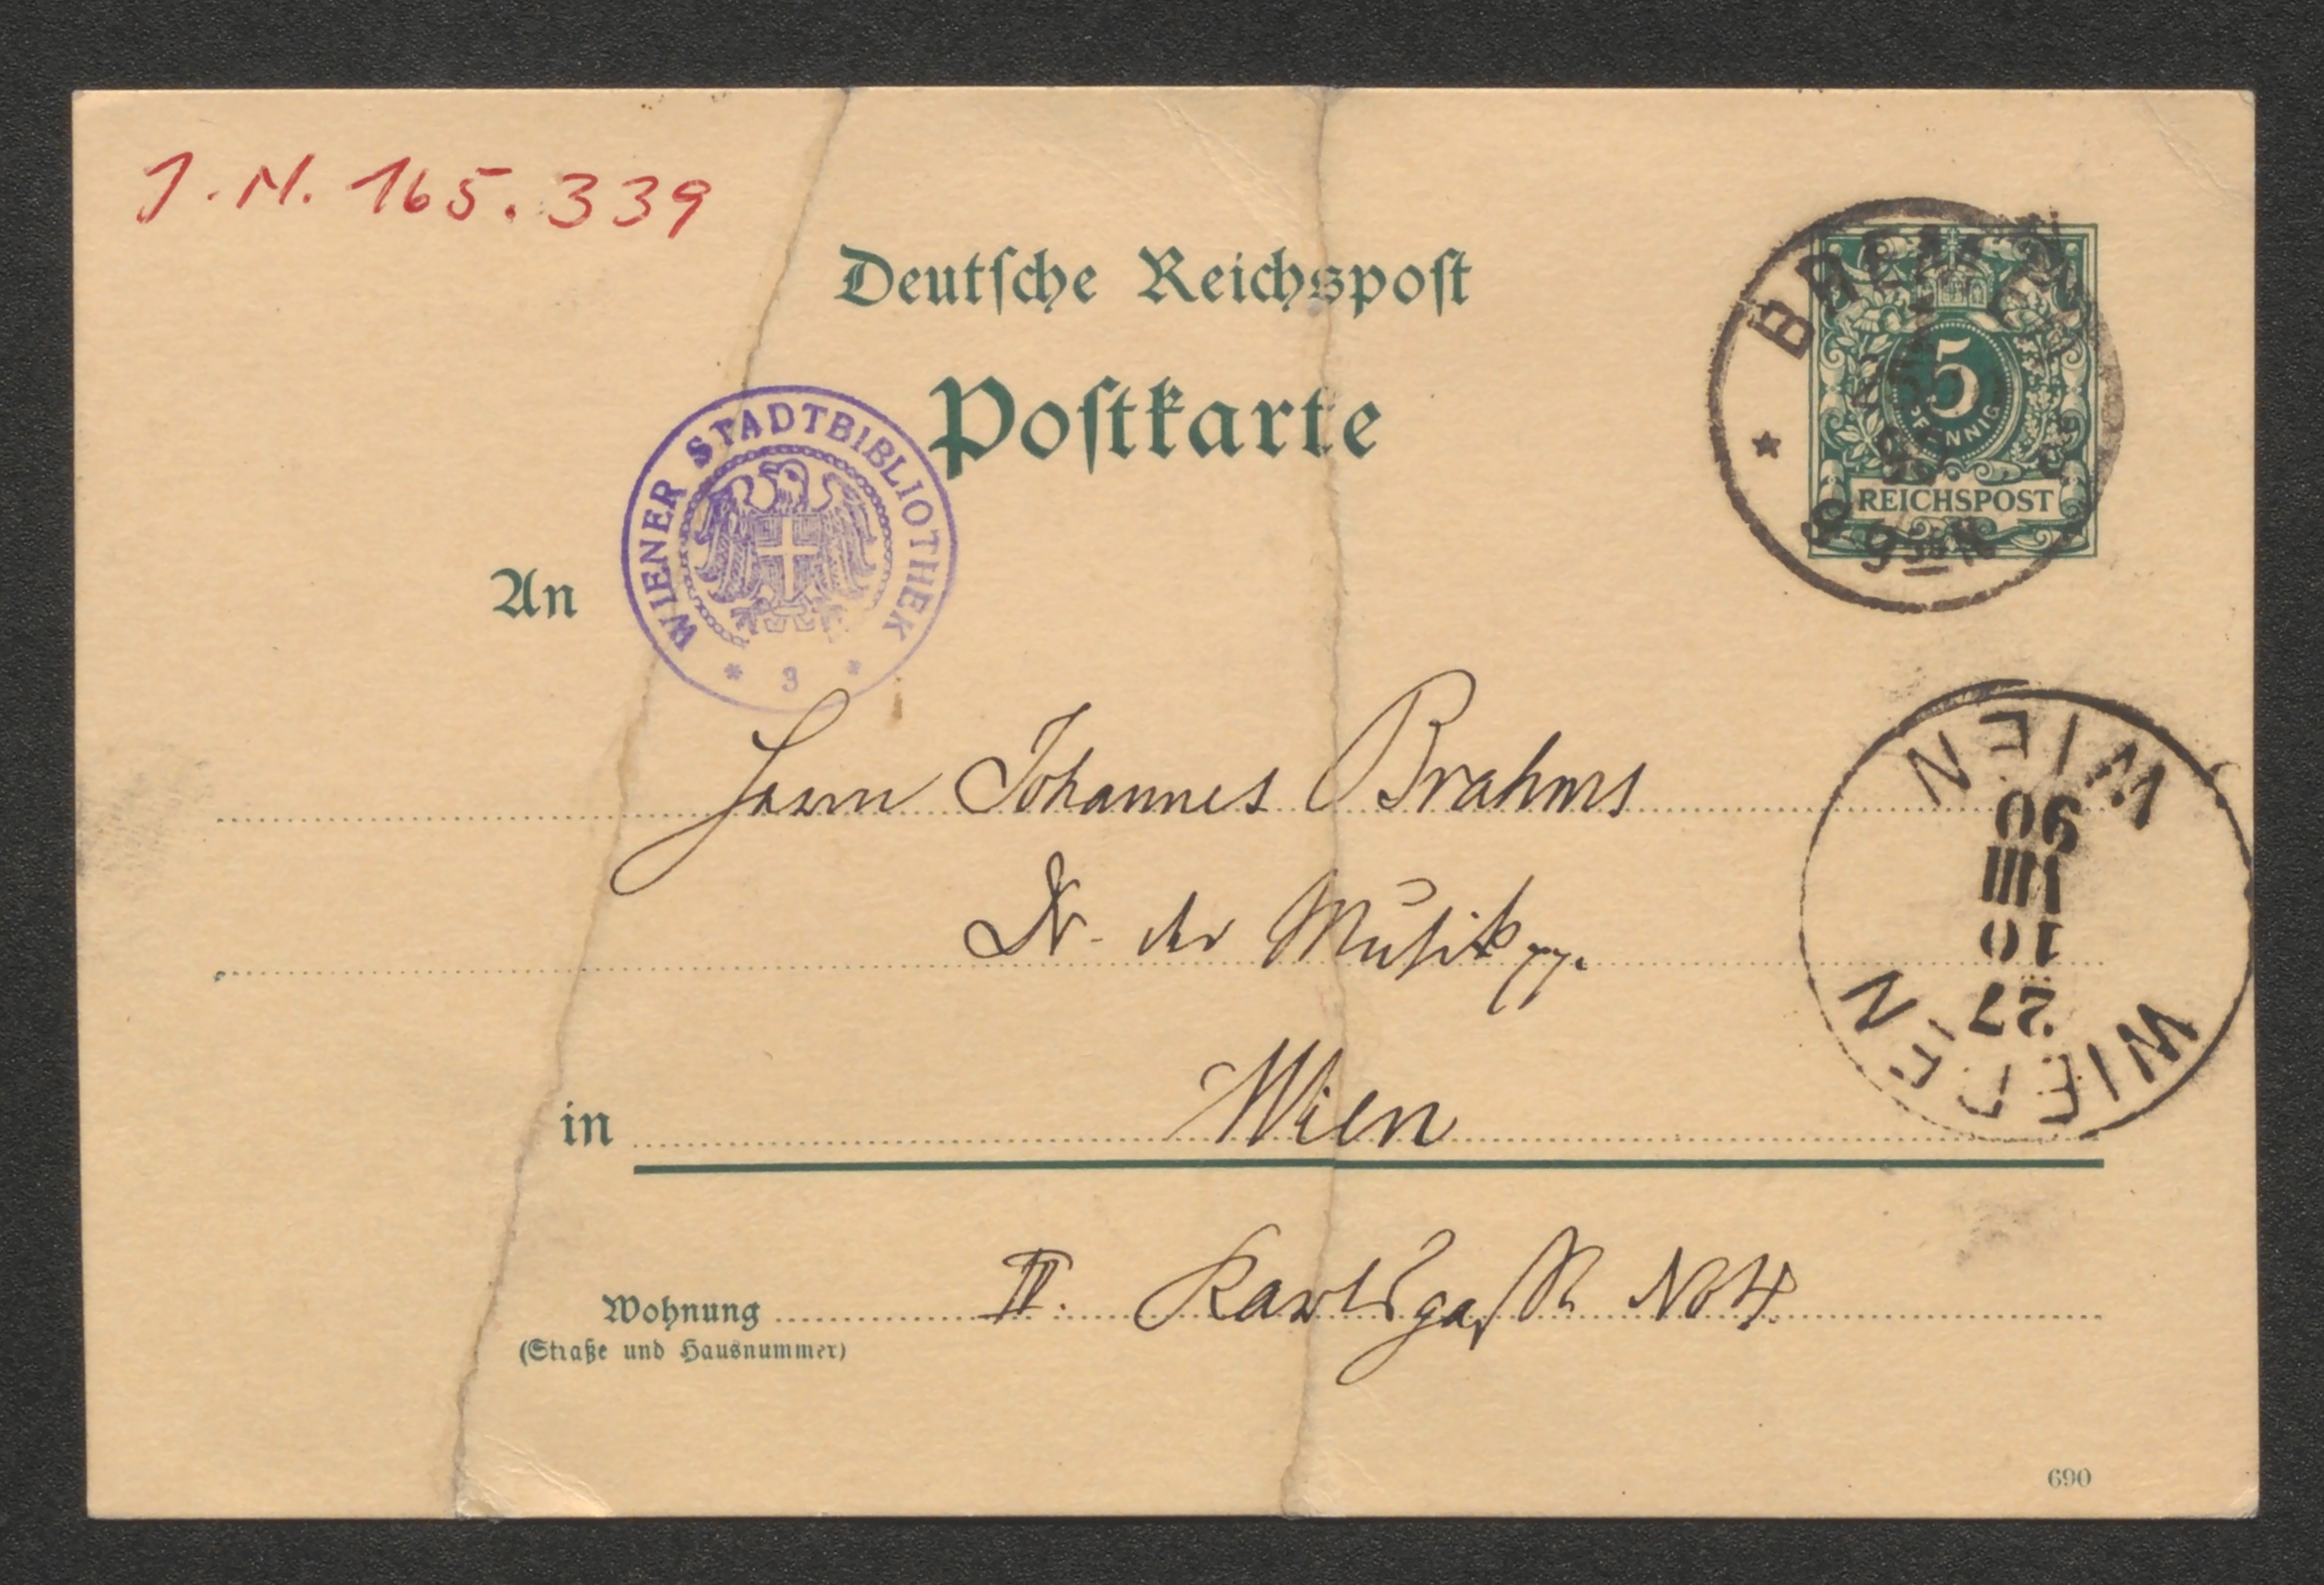 J.N. 165.339
Deutsche Reichspost
Postkarte
BREMEN
5
PFENNIG
REICHSPOST
WIENER STADTBIBLIOTHEK
* 9 *
An
Herrn Johannes Brahms
Dr. der Musik pp.
in Wien
WIEDEN
27
10
VIII
90
WIEN
Wohnung IV. Karlsgasse No 4.
(Straße und Hausnummer)
690